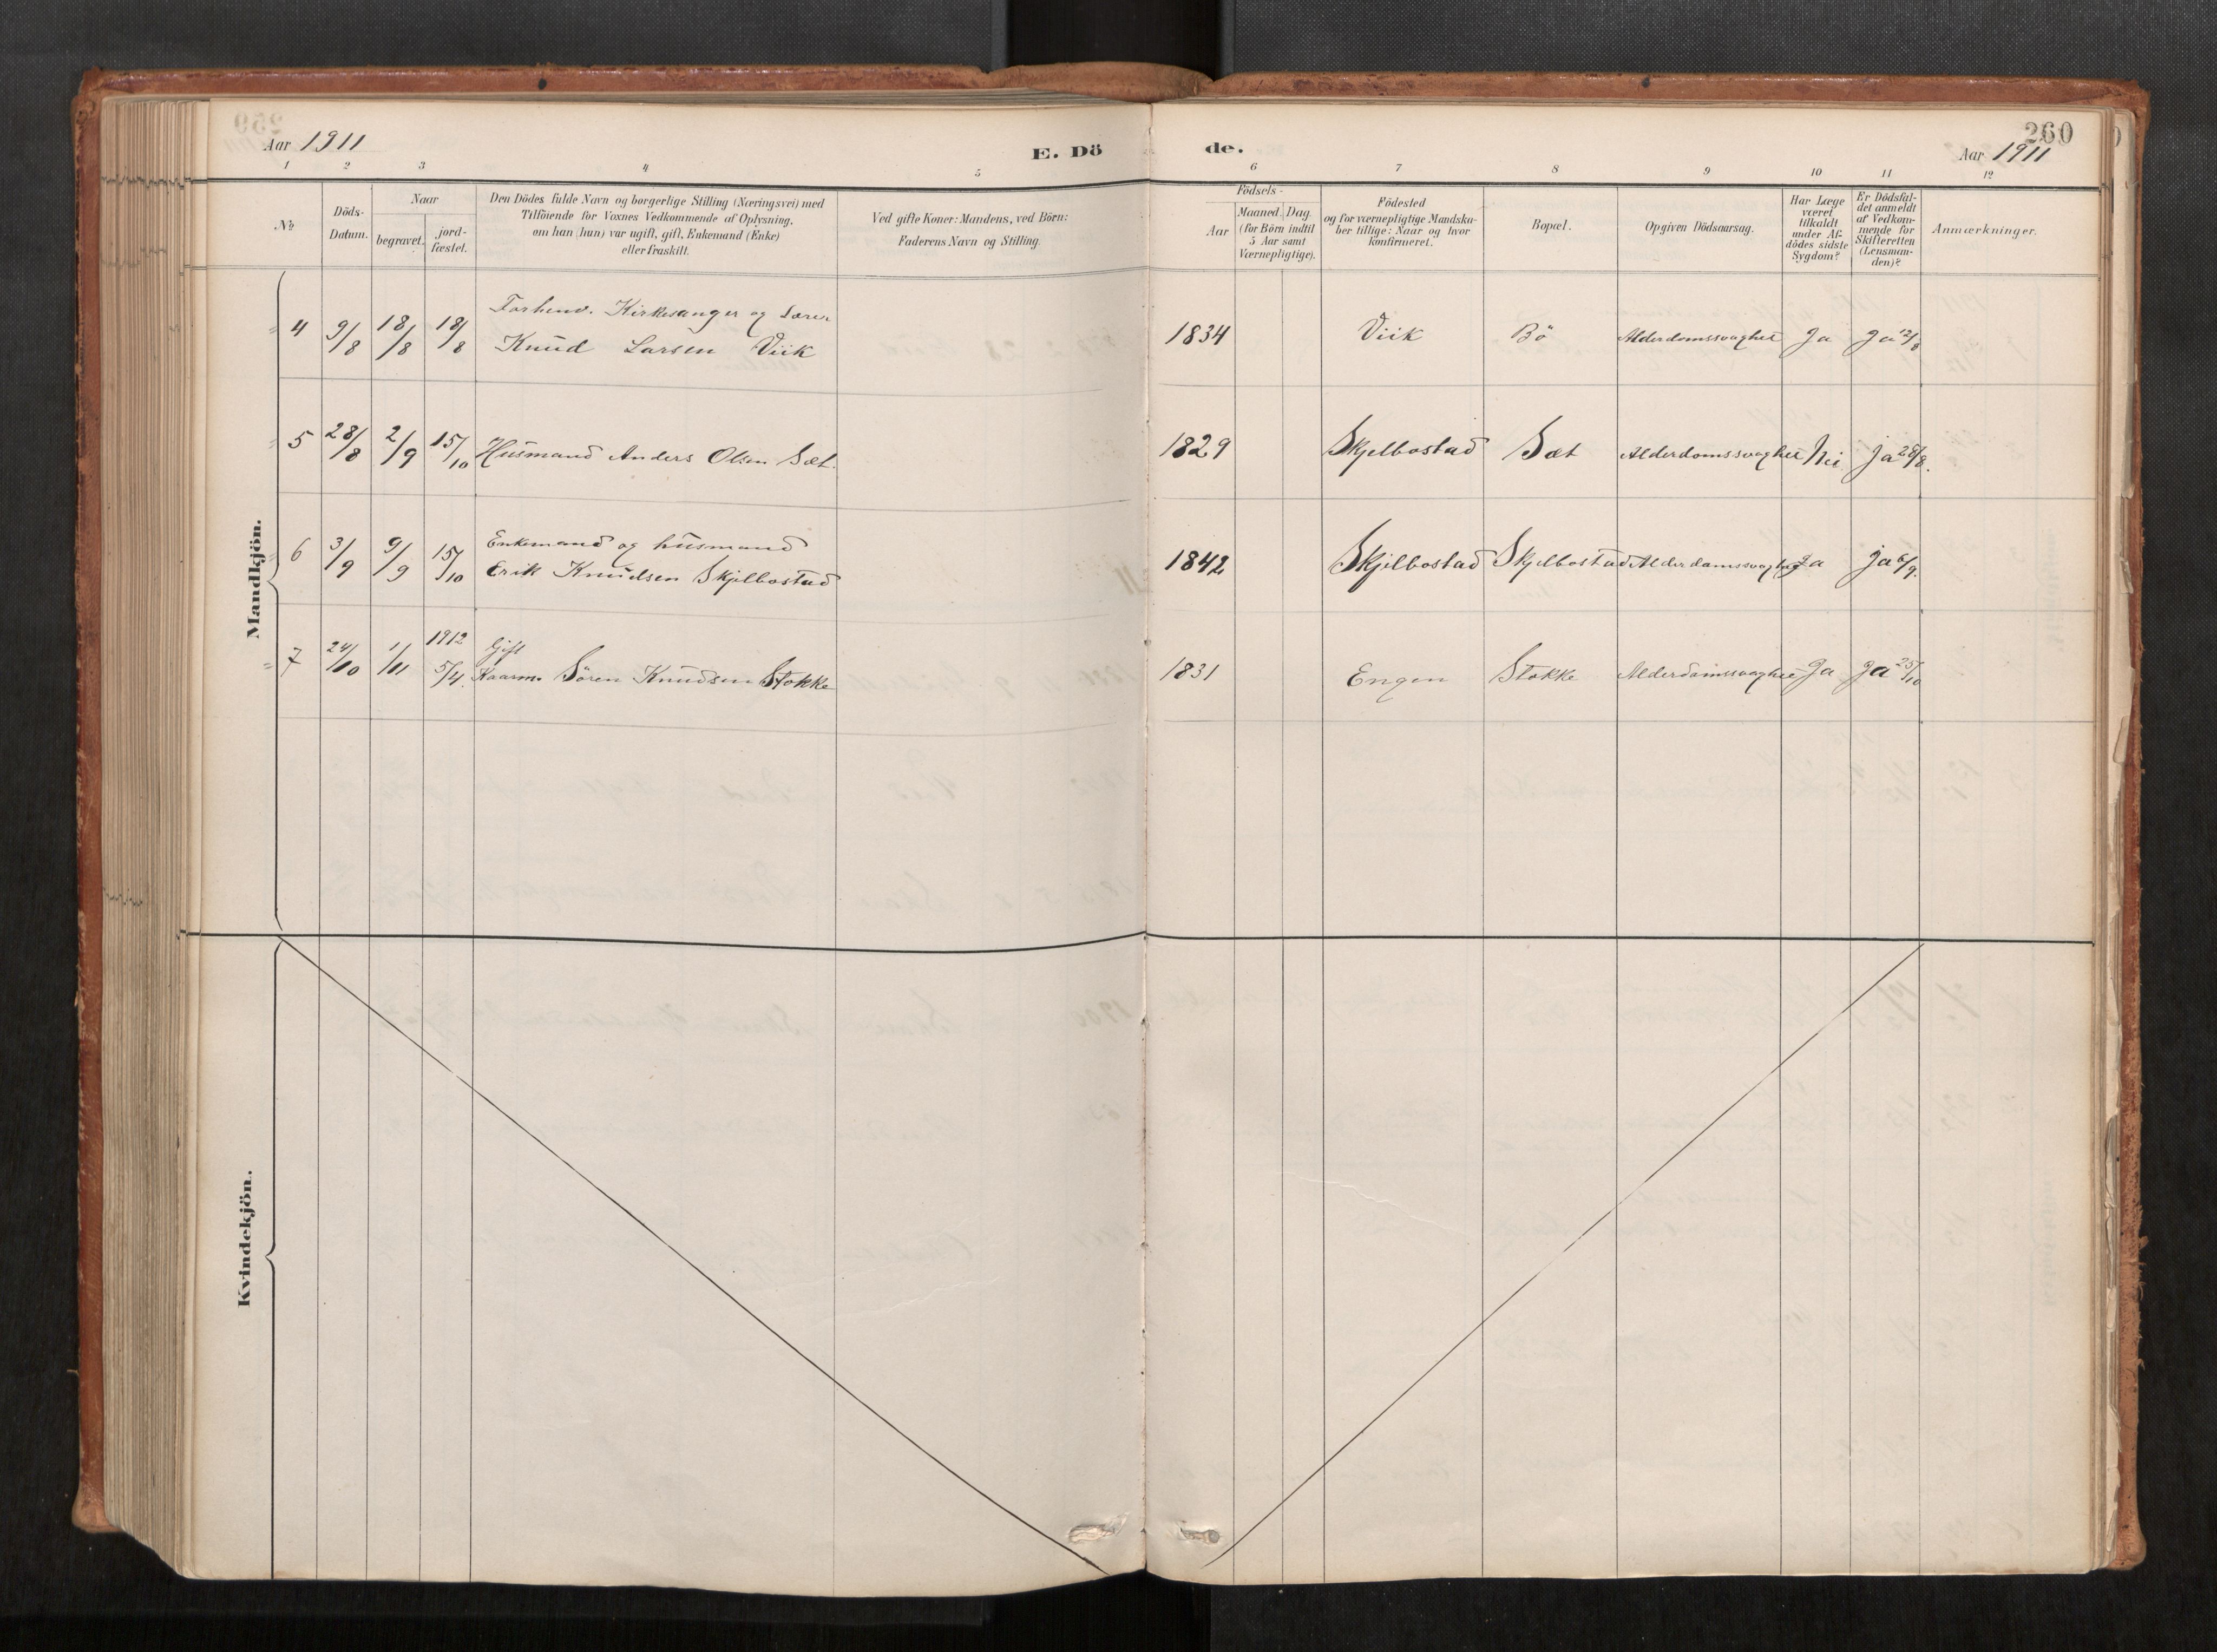 Aar 1911
E. Dö
de.
260
Aar 1911
1 2 3 4 5 6 7 8 9 10 11 12
№
Döds-Datum.
Naar
begravet.
jord-fæstet.
Den Dödes fulde Navn og borgerlige Stilling (Næringsvei) med
Tilföiende for Voxnes Vedkommende af Oplysning,
om han (hun) var ugift, gift, Enkemand (Enke)
eller fraskilt.
Ved gifte Koner: Mandens, ved Börn:
Faderens Navn og Stilling.
Födsels-
Aar
Maaned. Dag
(for Börn indtil
5 Aar samt
Værnepligtige).
Födested
og for værnepligtige Mandska-
ber tillige: Naar og hvor
konfirmeret.
Bopæl.
Opgiven Dödsaarsag.
Har Læge
været
tilkaldt
under Af-
dödes sidste
Sygdom?
Er Dödsfal-
det anmeldt
af Vedkom-
mende for
Skifteretten
(Lensman-
den)?
Anmærkninger.
Mandkjön.
Forhenv. Kirkesanger og Lærer
4 9/8 18/8 18/8 Knud Larsen Viik 1834 Viik Bö Alderdomssvaghet Ja Ja 12/8
5 28/8 2/9 15/10 Husmand Anders Olsen Sæt. 1829 Skjelbostad Sæt Alderdomssvaghet Nei Ja 28/8.
Enkemand og husmand
6 3/9 9/9 15/10 Erik Knudsen Skjelbostad 1842 Skjelbostad Skjelbostad Alderdomssvaghet Ja Ja 6/9.
1912 Gift
7 24/10 1/11 5/4. Kaarm. Sören Knudsen Stokke 1831 Engen Stokke Alderdomssvaghet Ja Ja 25/10
Kvindekjön.